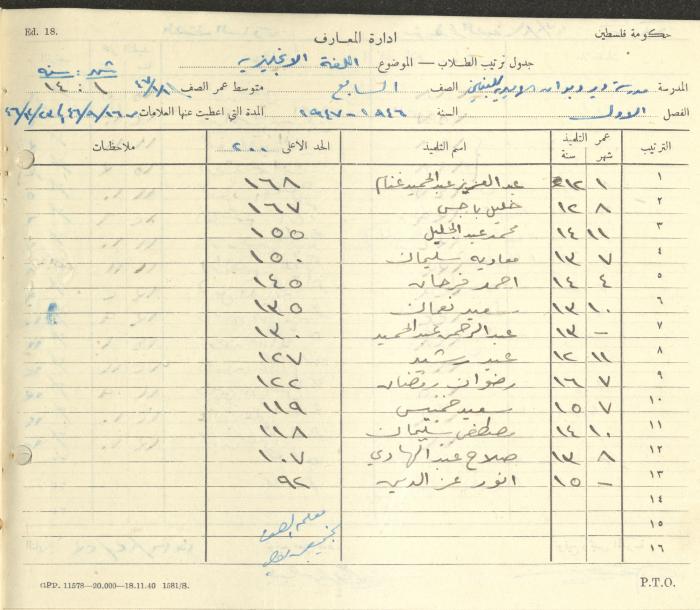 Ed. 18. حكومة فلسطين
ادارة المعارف
جدول ترتيب الطلاب — الموضوع اللغة الانجليزية
شهر : سنة
المدرسة مدرسة دير ديوان الاميرية للبنين الصف السابع متوسط عمر الصف ١ : ١٤
الفصل الاول السنة ١٩٤٦-١٩٤٧ المدة التي اعطيت عنها العلامات
الترتيب عمر التلميذ شهر سنة اسم التلميذ الحد الاعلى ٢٠٠ ملاحظات
١ ١ ١٢ عبد العزيز عبد الحميد غنام ١٦٨
٢ ٨ ١٢ خليل باجس ١٦٧
٣ ١١ ١٤ محمد عبد الجليل ١٥٥
٤ ٧ ١٣ معاوية سليمان ١٥٠
٥ ٤ ١٤ احمد فرحان ١٤٥
٦ ١٠ ١٣ سعيد نعمان ١٣٥
٧ – ١٣ عبد الرحمن عبد الحميد ١٣٠
٨ ١١ ١٢ عيد رشيد ١٢٧
٩ ٧ ١٦ رضوان رمضان ١٢٢
١٠ ٧ ١٥ سعيد خميس ١١٩
١١ ١٠ ١٤ مصطفى سليمان ١١٨
١٢ ٨ ١٣ صلاح عبد الهادي ١٠٧
١٣ – ١٥ انور عز الدين ٩٢
١٤
١٥
معلم الصف
١٦
GPP. 11578—20.000—18.11.40 1581/S. P.T.O.